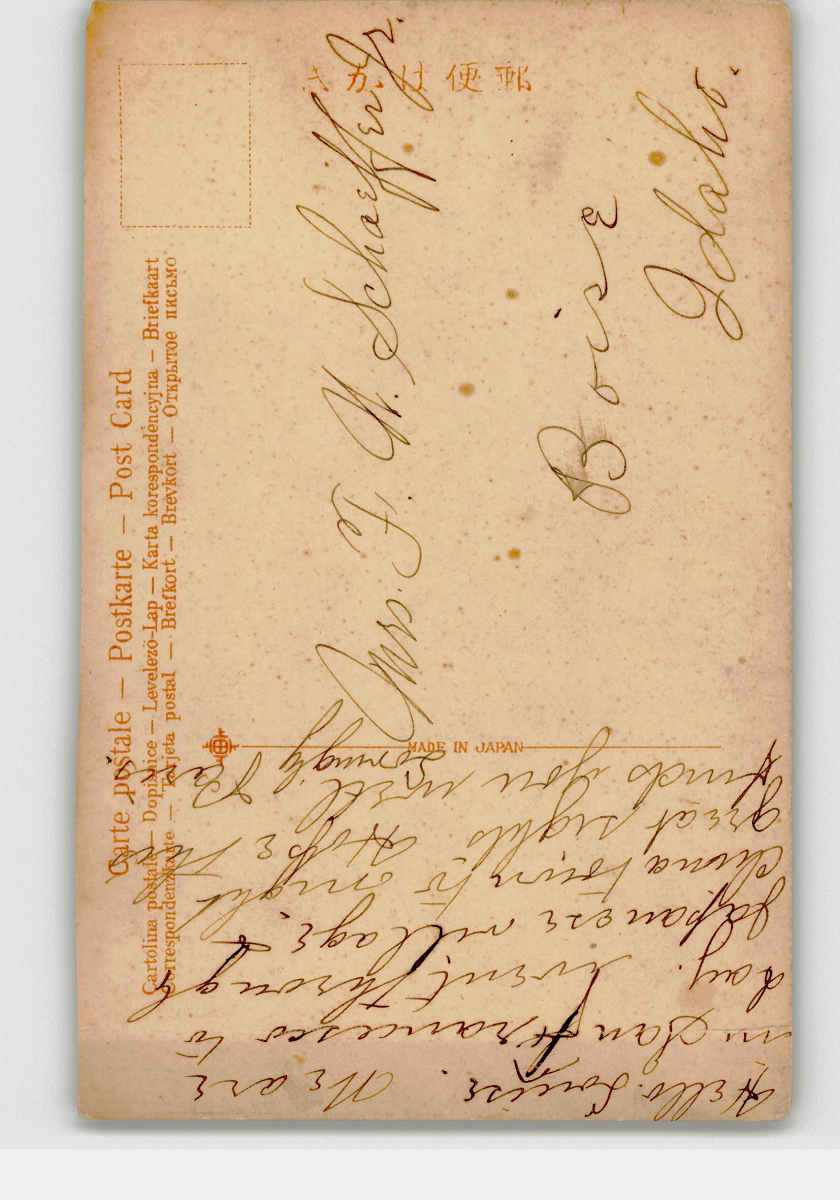 郵便はかき
Carte postale — Postkarte — Post Card
Cartolina postale — Dopisnice — Levelező-Lap — Karta korespondencyjna — Briefkaart
Correspondenzkarte — Tarjeta postal — Brefkort — Brevkort — Открытое письмо
MADE IN JAPAN
Mrs. F. W. Schaeffer Jr.
Boise
Idaho.
Hello. Louise. We are
in San Francisco to
day. Went through
Japanese village &
China town to night
great sights Hope this
finds you well
Lovingly